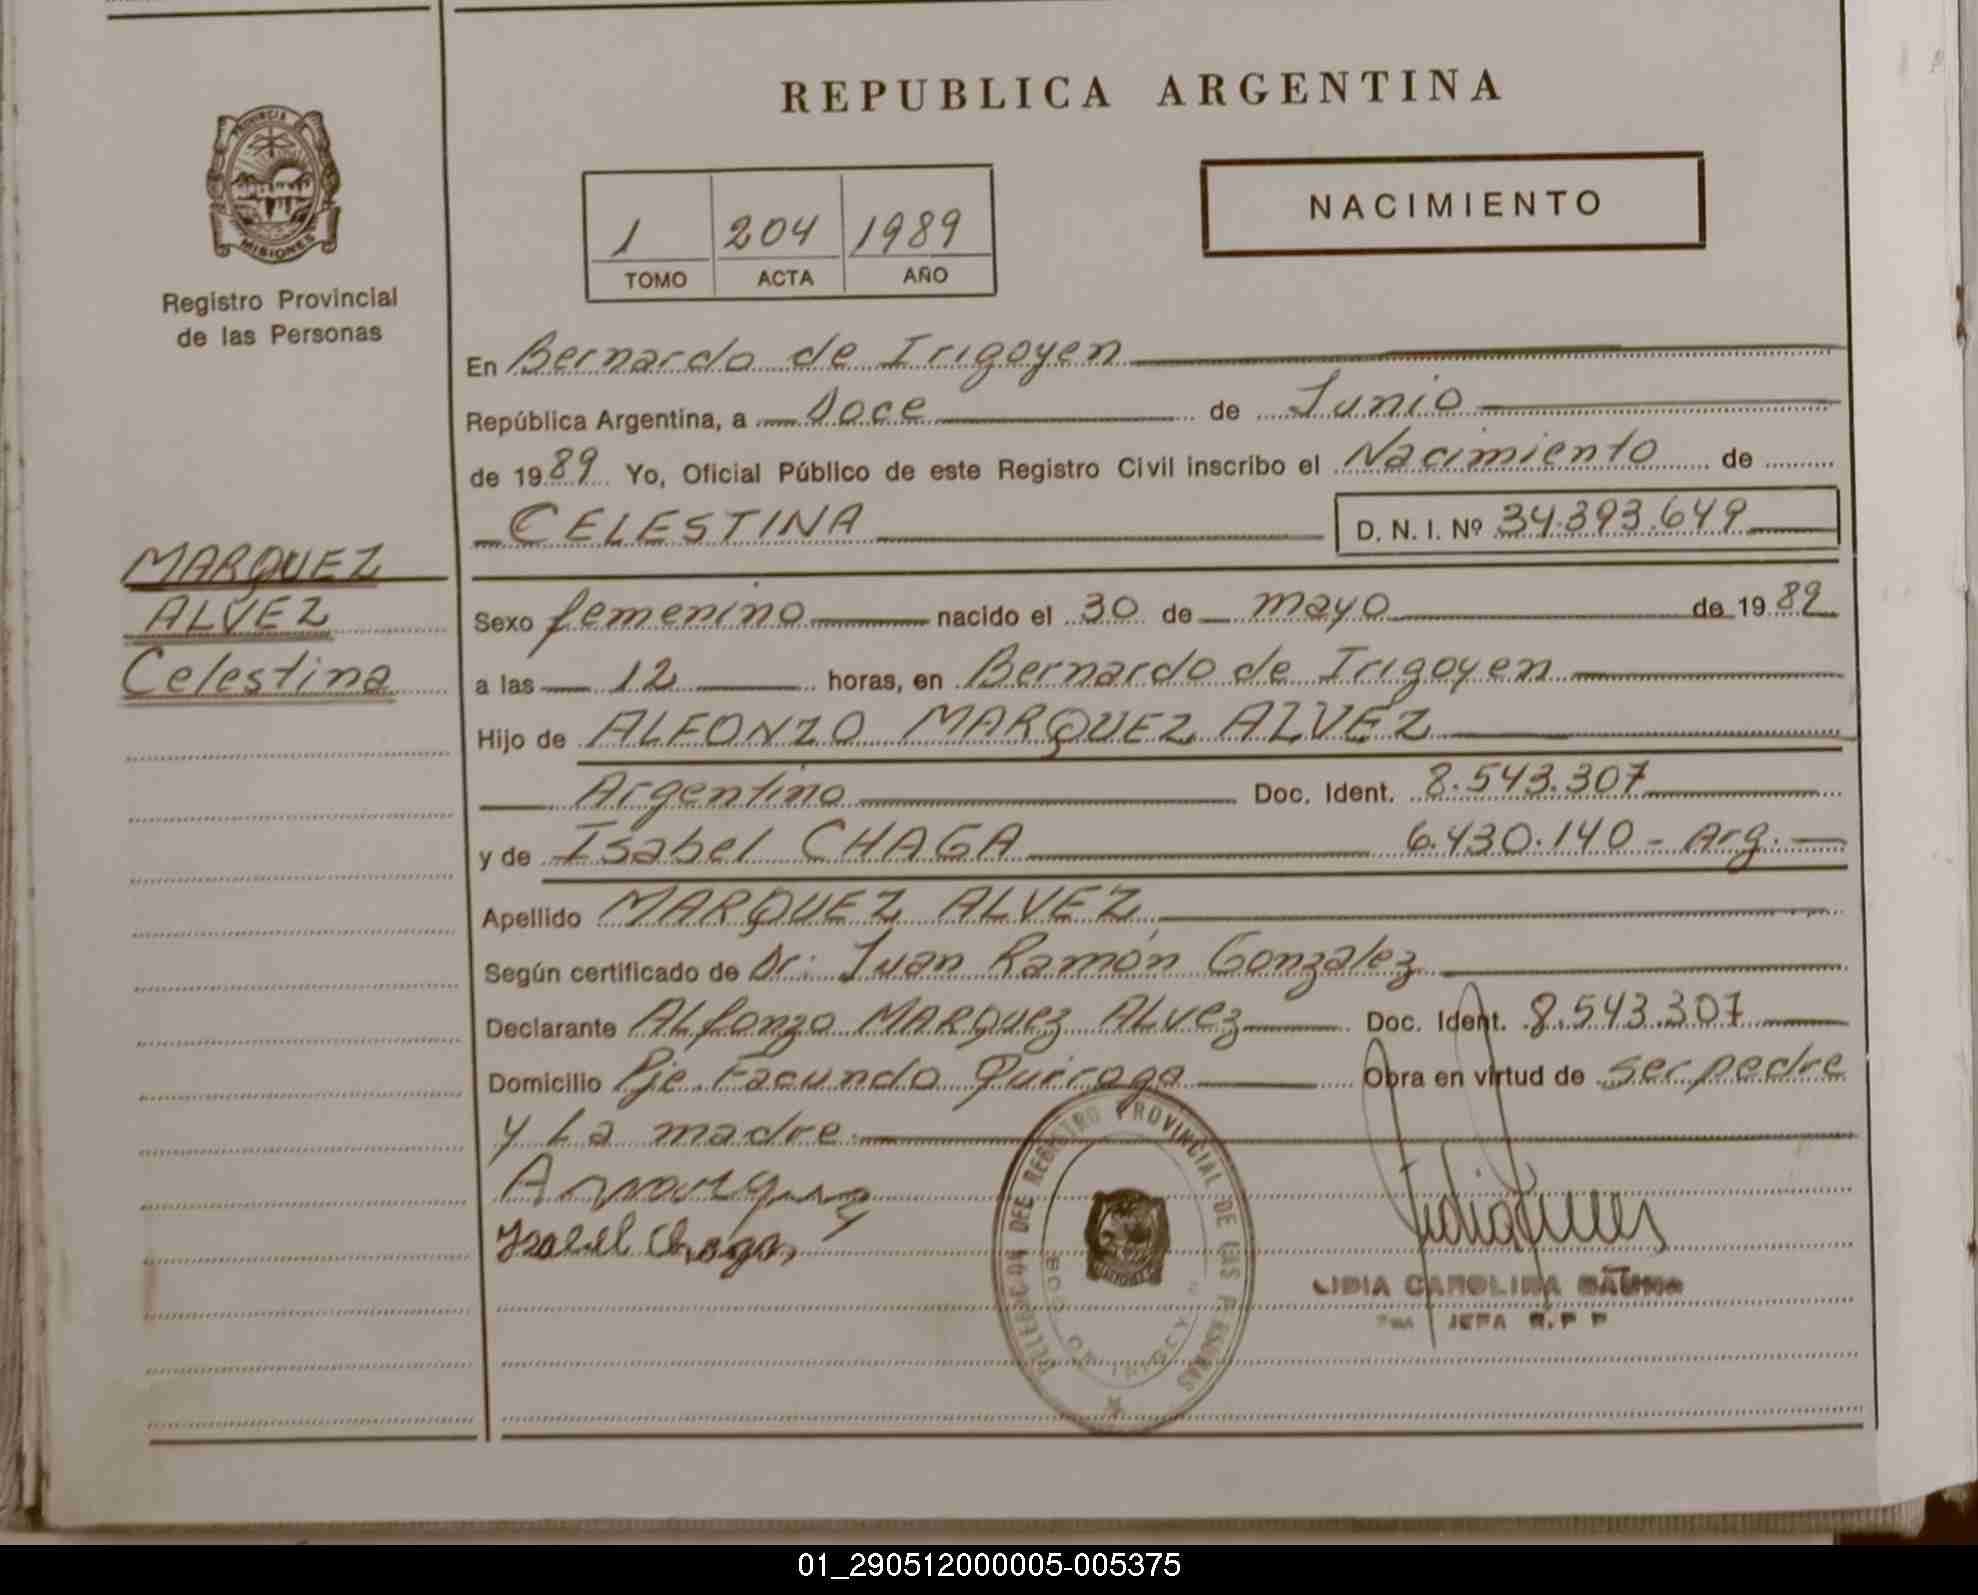 REPUBLICA ARGENTINA
PROVINCIA DE
MISIONES
Registro Provincial
de las Personas
1 204 1989
TOMO ACTA AÑO
NACIMIENTO
En Bernardo de Irigoyen
República Argentina, a Doce de Junio
de 1989 Yo, Oficial Público de este Registro Civil inscribo el Nacimiento de
CELESTINA D. N. I. Nº 34.393.649
MARQUEZ
ALVEZ
Celestina
Sexo femenino nacido el 30 de mayo de 1989
a las 12 horas, en Bernardo de Irigoyen
Hijo de ALFONZO MARQUEZ ALVEZ
Argentino Doc. Ident. 8.543.307
y de Isabel CHAGA 6.430.140 - Arg. -
Apellido MARQUEZ ALVEZ
Según certificado de Dr: Juan Ramón Gonzalez
Declarante ALfonzo MARQUEZ ALVEZ Doc. Ident. 8.543.307
Domicilio Pje. Facundo Quiroga Obra en virtud de ser padre
y La madre.
Isabel Chaga
DELEGACION DEL REGISTRO PROVINCIAL DE LAS PERSONAS
LIDIA CAROLINA
JEFA R.P.P
01_290512000005-005375